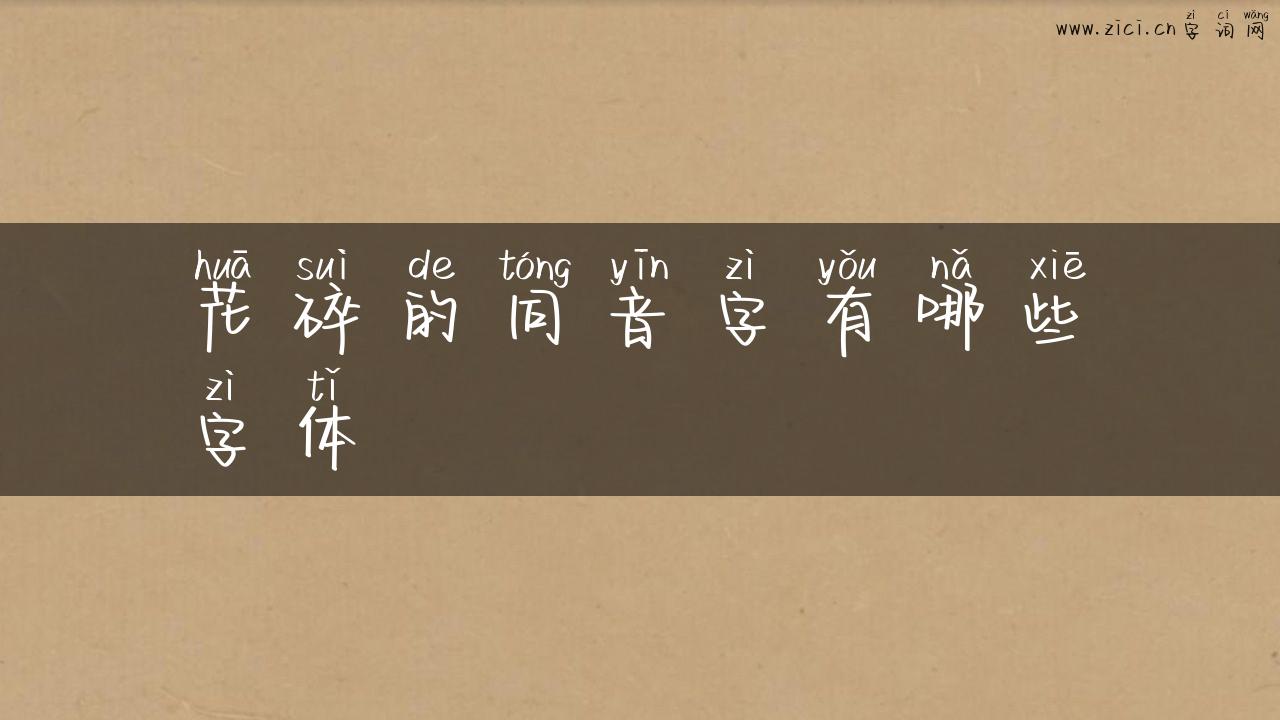 zì cí wǎng
www.zici.cn 字 词 网
huā suì de tóng yīn zì yǒu nǎ xiē
花 碎 的 同 音 字 有 哪 些
zì tǐ
字 体